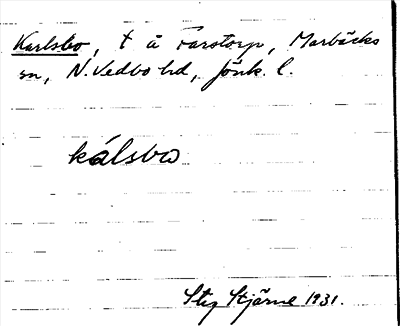 Karlsbo, t å Farstorp, Marbäcks
sn, N. Vedbo hd, Jönk. l.
kálsbo
Stig Stjärne 1931.